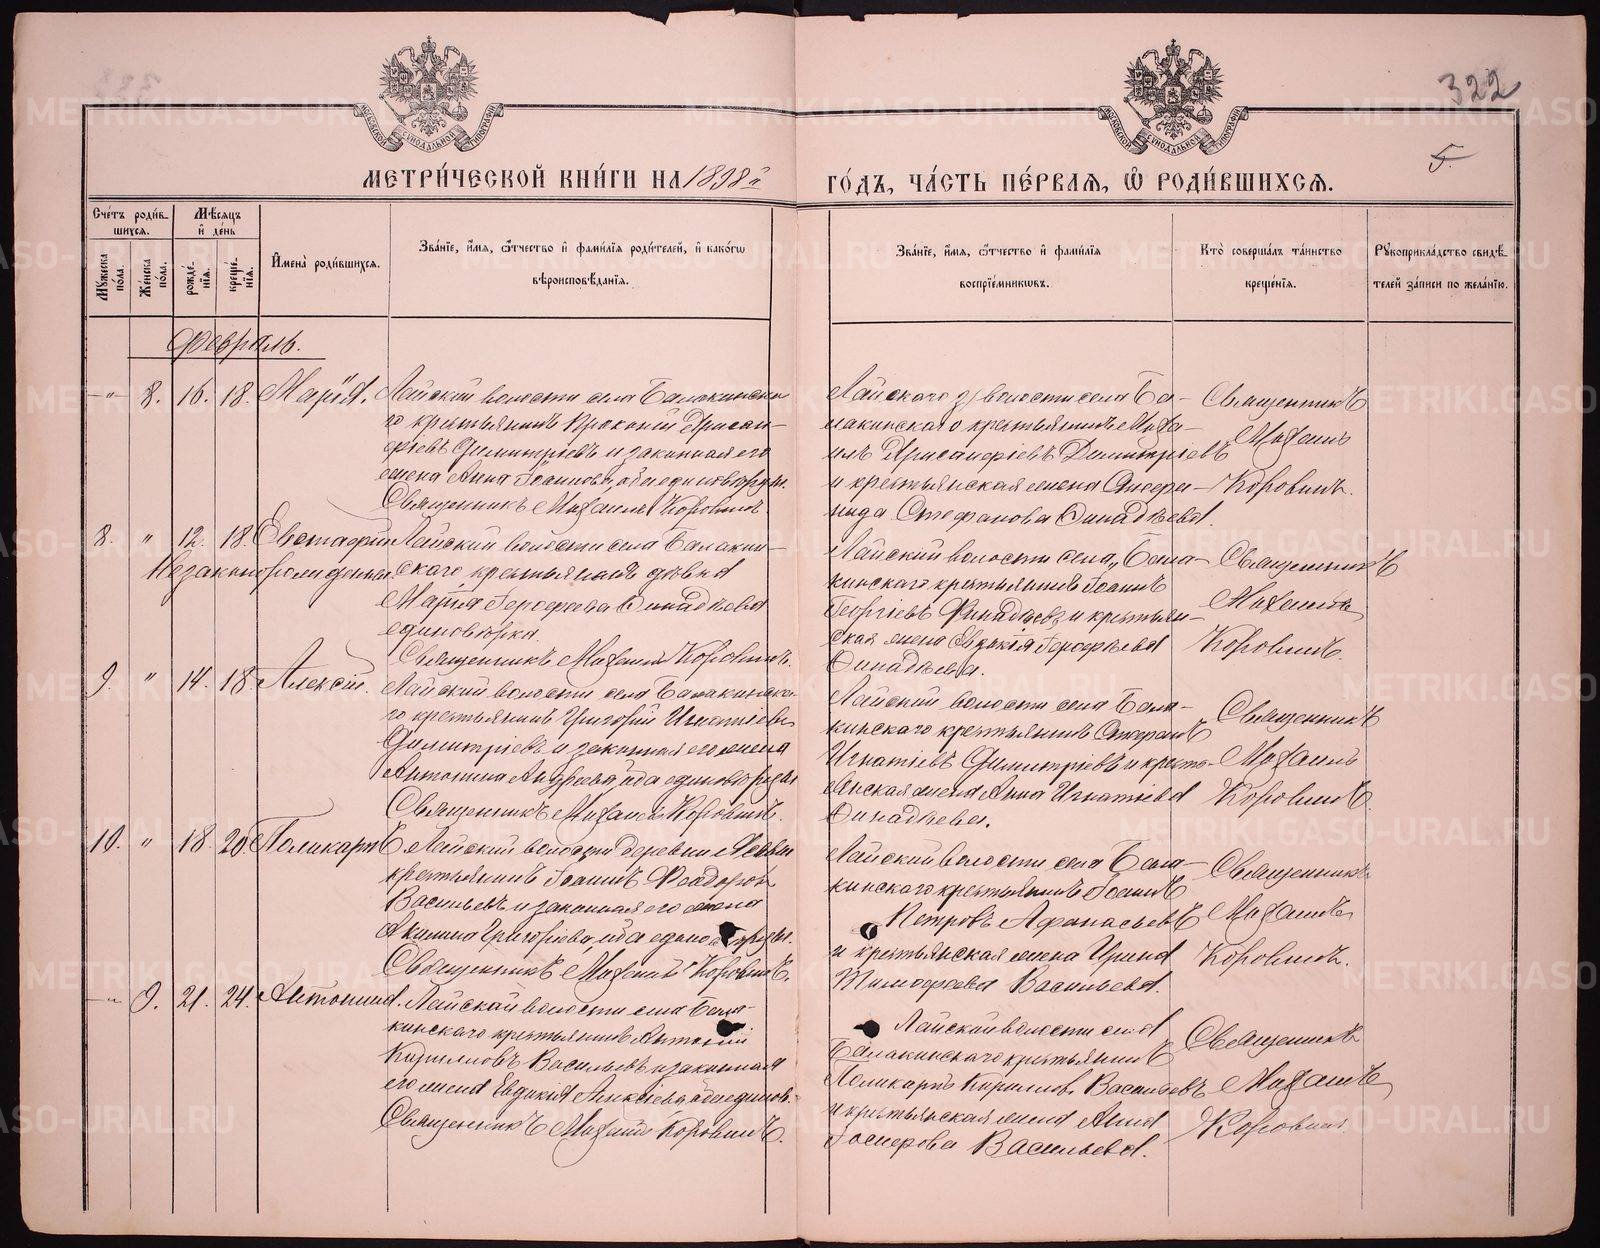 322
5.
МЕТРИ́ЧЕСКОЙ КНИ́ГИ НА 1898й ГО́ДЪ, ЧА́СТЬ ПЕ́РВАѦ, Ѡ РОДИ́ВШИХСѦ.
Сче́тъ роди́в-
шихсѧ.
Мꙋжеска по́ла.
Же́нска по́ла.
Мѣ́сѧцъ
и҆ де́нь
рожде́-
нїѧ.
креще́-
нїѧ.
И҆мена̀ роди́вшихсѧ.
Зва́нїе, и҆́мѧ, ѻ҆́тчество и҆ фами́лїѧ роди́телей, и҆ како́гѡ
вѣроисповѣ́данїѧ.
Зва́нїе, и҆́мѧ, ѻ҆́тчество и҆ фами́лїѧ
воспрїе́мникѡвъ.
Кто̀ соверша́лъ та́инство
креще́нїѧ.
Рꙋкоприкла́дство свидѣ́-
телей за́писи по жела́нїю.
Февраль.
-"- 8. 16. 18. Марія.
Лайской волости села Балакинска
го крестьянинъ Прокопій Хрисан-
фіевъ Димитріевъ и законная его
жена Анна Іоаннова, оба единовѣрцы.
Священникъ Михаилъ Коровинъ
Лайского волости села Ба-
лакинскаго крестьянинъ Миха-
илъ Хрисанфіевъ Димитріевъ
и крестьянская жена
Стефанова Финадѣева.
Священникъ
Михаилъ
Коровинъ.
8. " 12. 18. Евстафій
Незаконнорожденный
Лайской волости села Балакин-
скаго крестьянская дѣвка
Марія Ерофеева Финадѣева
единовѣрка.
Священникъ Михаилъ Коровинъ.
Лайской волости села Бала-
кинскаго крестьянинъ Іоаннъ
Георгіевъ Финадѣевъ и крестьян-
ская жена Евдокія Ерофѣева
Финадѣева.
Священникъ
Михаилъ
Коровинъ.
9. " 14. 18. Алексій.
Лайской волости села Балакинска-
го крестьянинъ Григорій Игнатіевъ
Димитріевъ и законная его жена
Антонина Андреева, оба единовѣрцы
Священникъ Михаилъ Коровинъ.
Лайской волости села Бала-
кинскаго крестьянинъ Стефанъ
Игнатіевъ Димитріевъ и кресть-
янская жена Анна Игнатіева
Финадѣева.
Священникъ
Михаилъ
Коровинъ.
10. " 18. 20. Поликарпъ
Лайской волости деревни
крестьянинъ Іоаннъ Феодоровъ
Васильевъ и законная его жена
Акилина Григоріева, оба единовѣрцы.
Священникъ Михаилъ Коровинъ.
Лайской волости села Бала-
кинскаго крестьянинъ Іоаннъ
Петровъ Афанасьевъ
и крестьянская жена Ирина
Тимофѣева Васильева.
Священникъ
Михаилъ
Коровинъ.
-"- 9. 21. 24. Антонина.
Лайской волости села Бала-
кинскаго крестьянинъ Антоній
Кирилловъ Васильевъ и законная
его жена Евдокія Алексіева, оба единов.
Священникъ Михаилъ Коровинъ.
Лайской волости села
Балакинскаго крестьянинъ
Поликарпъ Кирилловъ Васильевъ
и крестьянская жена Анна
Васильева.
Священникъ
Михаилъ
Коровинъ
METRIKI.GASO-URAL.RU